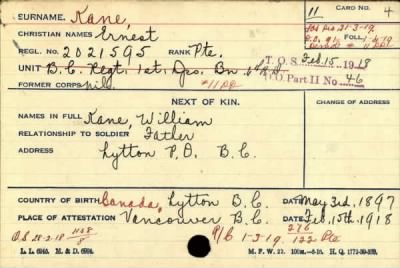 SURNAME. Kane,
CARD NO.
11 4
CHRISTIAN NAMES Ernest
REGL. NO. 2021595 RANK Pte.
FOLL.
UNIT B.C. Regt. 1st. Bn
T.O.S. Feb. 15 1918
D.O. Part II No. 46
FORMER CORPS nil.
NEXT OF KIN.
CHANGE OF ADDRESS
NAMES IN FULL Kane, William
RELATIONSHIP TO SOLDIER Father
ADDRESS Lytton P.O. B.C.
COUNTRY OF BIRTH Canada, Lytton B.C. DATE May 3rd, 1897
PLACE OF ATTESTATION Vancouver B.C. DATE Feb. 15th, 1918
O.S. 28-2-18 1168/5
R/C 1-3-19 276/122 Pte
L. L. 6946. M. & D. 6984.
M. F. W. 22.